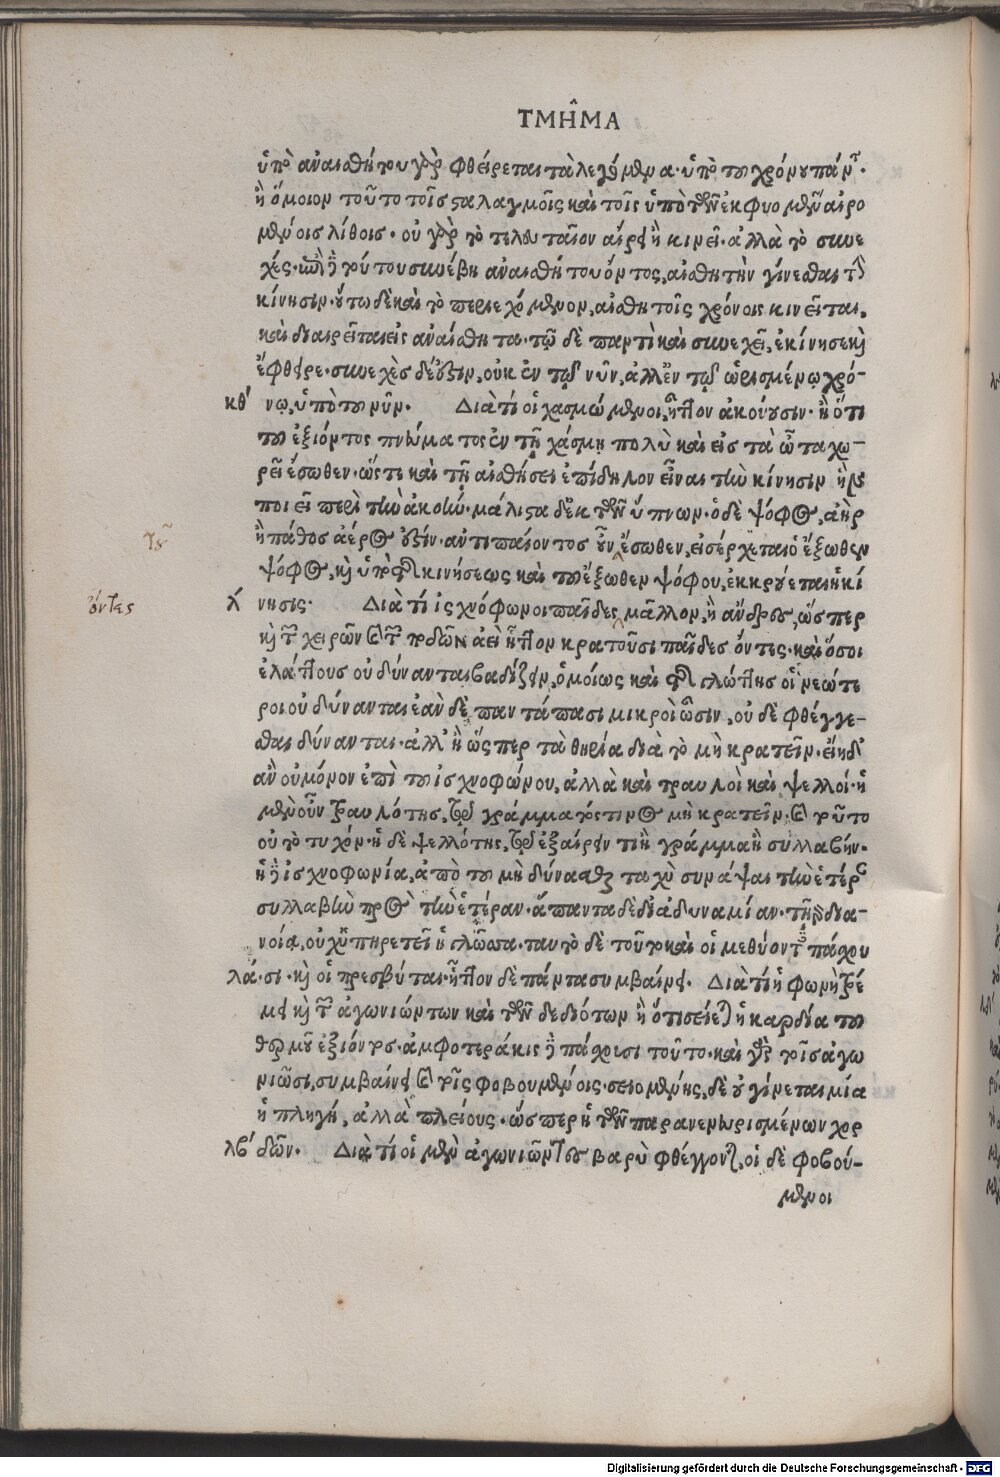 ΤΜΗ͂ΜΑ
ὑπὸ ἀναισθήτου γὰρ φθείρεται τὰ λεγόμενα. ὑπὸ τοῦ χρόνου πάντα.
ἢ ὅμοιον τοῦτο τοῖς σταλαγμοῖς καὶ τοῖς ὑπὸ τῶν ἐκφυομένων αἰρο
μένοις λίθοις. οὐ γὰρ τὸ τελευταῖον αἴρει ἢ κινεῖ. ἀλλὰ τὸ συνε
χές. τούτου συνέβη ἀναισθήτου ὄντος, αἰσθητὴν γίνεσθαι τὴν
κίνησιν. οὕτω δὲ καὶ τὸ περιεχόμενον, αἰσθητοῖς χρόνοις κινεῖται,
καὶ διαιρεῖται εἰς ἀναίσθητα. τῷ δὲ παντὶ καὶ συνεχεῖ, ἐκίνησε καὶ
ἔφθειρε. συνεχὲς δέ ἐστιν, οὐκ ἐν τῷ νῦν, ἀλλ' ἐν τῷ ὡρισμένῳ χρό-
κθ' νῳ, ὑπὸ τοῦ νῦν. Διὰ τί οἱ χασμώμενοι, ἧττον ἀκούουσιν. ἢ ὅτι
τοῦ ἐξιόντος πνεύματος ἐν τῇ χάσμῃ πολὺ καὶ εἰς τὰ ὦτα χω-
ρεῖ ἔσωθεν. ὥστε καὶ τῇ αἰσθήσει ἐπίδηλον εἶναι τὴν κίνησιν ἣν
ποιεῖ περὶ τὴν ἀκοήν. μάλιστα δ' ἐκ τῶν ὕπνων. ὁ δὲ ψόφος, ἀὴρ
ἢ πάθος ἀέρος ἐστίν. ἀντιπαίοντος οὖν ἔσωθεν, εἰσέρχεται ὁ ἔξωθεν
τοῦ
ψόφος, καὶ ὑπὸ τῆς κινήσεως καὶ τοῦ ἔξωθεν ψόφου, ἐκκρούεται ἡ κί
ὄντες
λ νησις. Διὰ τί ἰσχνόφωνοι παῖδες μᾶλλον, ἢ ἄνδρες, ὥσπερ
καὶ τῶν χειρῶν καὶ τῶν ποδῶν ἀεὶ ἧττον κρατοῦσι παῖδες ὄντες. καὶ ὅσοι
ἐλάττους οὐ δύνανται βαδίζειν, ὁμοίως καὶ τῆς γλώττης οἱ νεώτε
ροι οὐ δύνανται ἐὰν δὲ παντάπασι μικροὶ ὦσιν, οὐδὲ φθέγγε-
σθαι δύνανται. ἀλλ' ἢ ὥσπερ τὰ θηρία διὰ τὸ μὴ κρατεῖν. εἴη δ'
ἂν οὐ μόνον ἐπὶ τοῦ ἰσχνοφώνου, ἀλλὰ καὶ τραυλοὶ καὶ ψελλοί. ἡ
μὲν οὖν τραυλότης, τῷ γράμματός τινος μὴ κρατεῖν. καὶ τοῦτο
οὐ τὸ τυχόν. ἡ δὲ ψελλότης, τῷ ἐξαίρειν τι ἢ γράμμα ἢ συλλαβήν.
ἡ δὲ ἰσχνοφωνία, ἀπὸ τοῦ μὴ δύνασθαι ταχὺ συνάψαι τὴν ἑτέραν
συλλαβὴν πρὸς τὴν ἑτέραν. ἅπαντα δὲ δι' ἀδυναμίαν. τῇ γὰρ δια-
νοίᾳ, οὐχ ὑπηρετεῖ ἡ γλῶσσα. ταυτὸ δὲ τοῦτο καὶ οἱ μεθύοντες πάσχου
λά. σι. καὶ οἱ πρεσβύται. ἧττον δὲ πάντα συμβαίνει. Διὰ τί ἡ φωνὴ τρέ
μει καὶ τῶν ἀγωνιώντων καὶ τῶν δεδιότων ἢ ὅτι σείεται ἡ καρδία τοῦ
θερμοῦ ἐξιόντος. ἀμφοτεράκις γὰρ πάσχουσι τοῦτο. καὶ γὰρ τοῖς ἀγω
νιῶσι, συμβαίνει καὶ τοῖς φοβουμένοις. σειομένης, δὲ οὐ γίνεται μία
ἡ πληγή, ἀλλὰ πλείους. ὥσπερ ἡ τῶν παρανενευρισμένων χορ
λβ' δῶν. Διὰ τί οἱ μὲν ἀγωνιῶντες βαρὺ φθέγγονται, οἱ δὲ φοβού-
μενοι
Digitalisierung gefördert durch die Deutsche Forschungsgemeinschaft - DFG